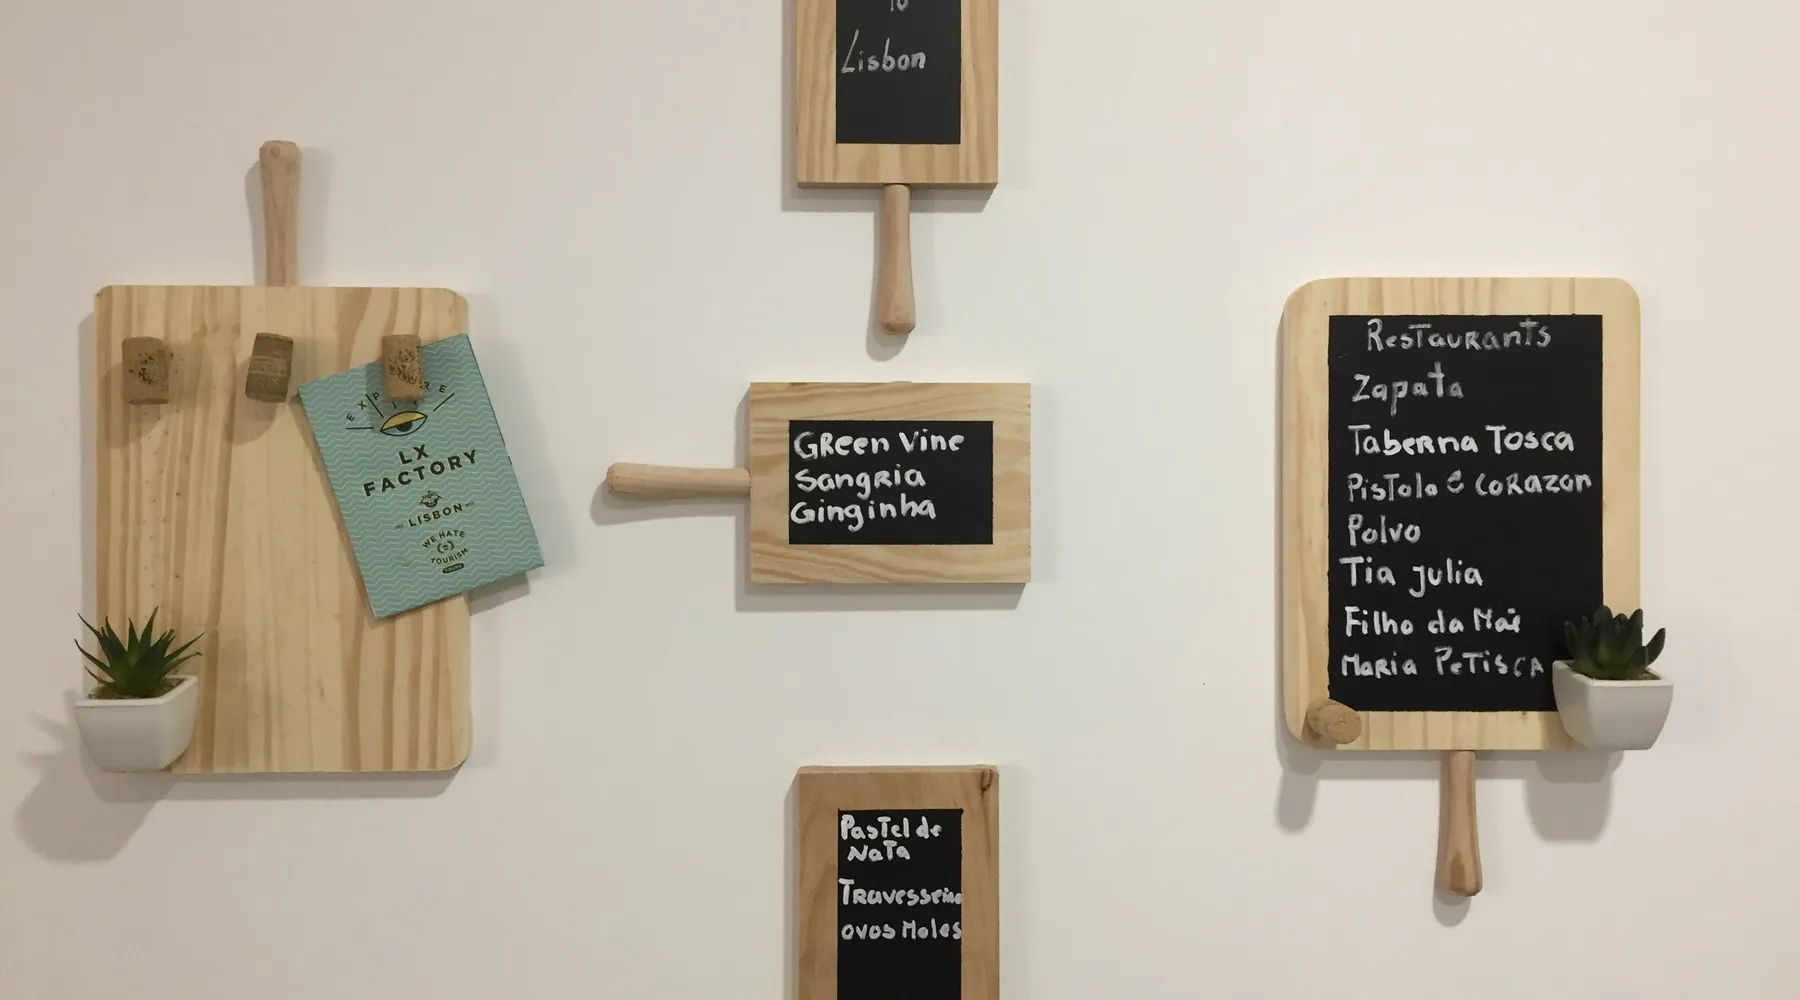 To
Lisbon
EXPLORE
LX
FACTORY
LISBON
WE HATE
TOURISM
TOURS
GReen Vine
SangRia
Ginginha
Pastel de
Nata
TRavesseiro
ovos Moles
RestauRants
Zapata
TabeRna Tosca
Pistola e CoRazon
Polvo
Tia Julia
Filho da Mãe
MaRia PeTisCA